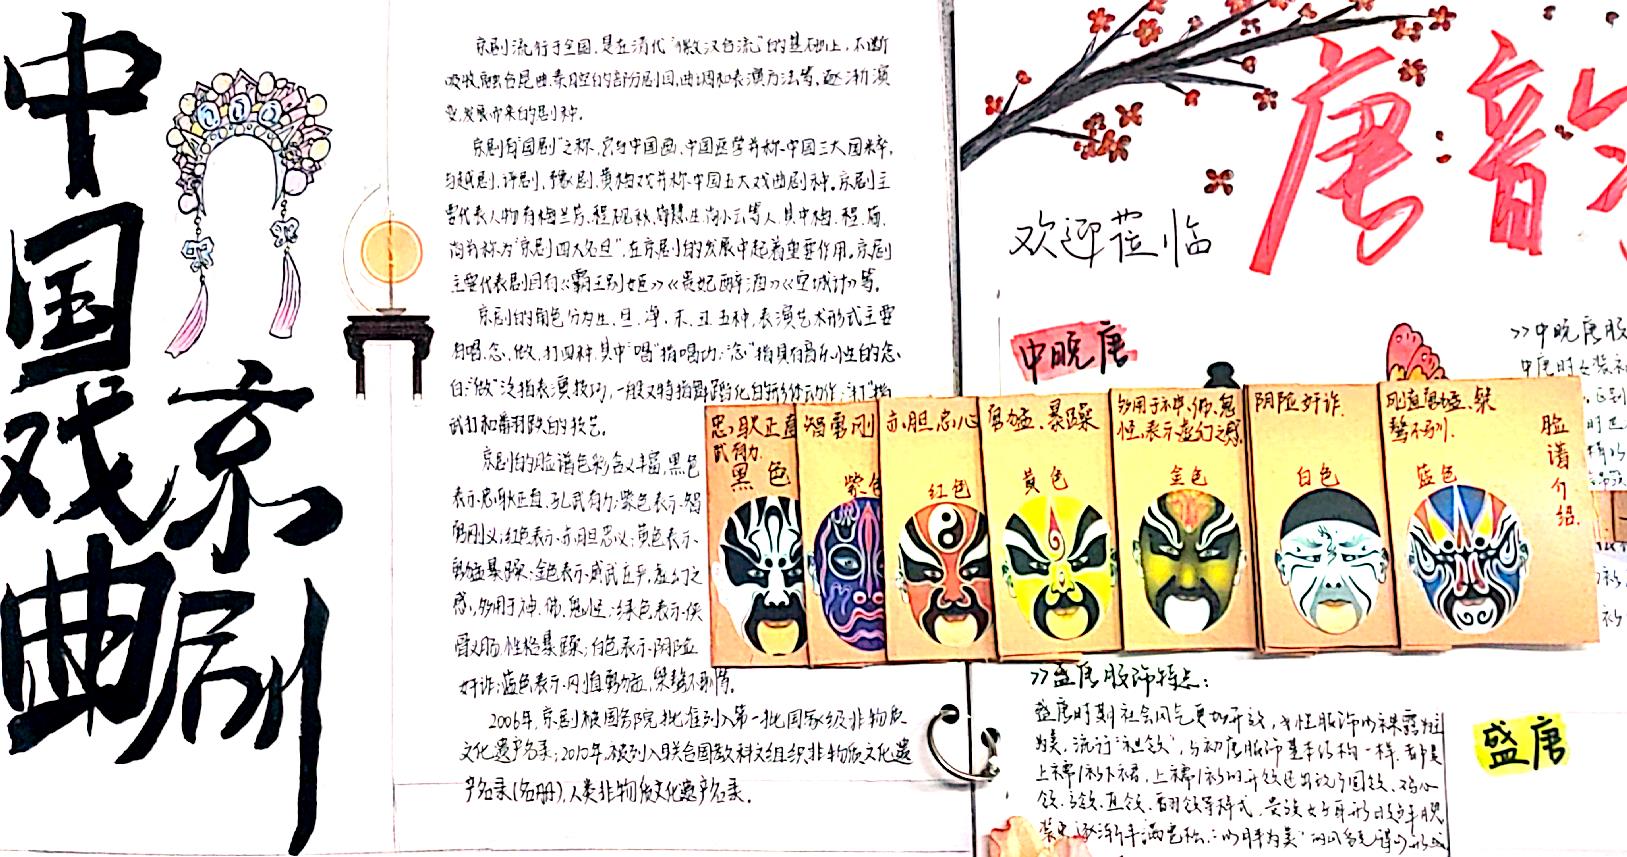 中国戏曲
京剧
京剧流行于全国,是在清代"徽汉合流"的基础上,不断
吸收融合昆曲秦腔的部分剧目,曲调和表演方法等,逐渐演
变发展而来的剧种。
京剧有"国剧"之称,它与中国画、中国医学并称中国三大国粹,
与越剧、评剧、豫剧、黄梅戏并称中国五大戏曲剧种。京剧主
要代表人物有梅兰芳、程砚秋、荀慧生、尚小云等人,其中梅、程、荀、
尚并称为"京剧四大名旦",在京剧的发展中起着重要作用。京剧
主要代表剧目有《霸王别姬》《贵妃醉酒》《空城计》等。
京剧的角色分为生、旦、净、末、丑五种,表演艺术形式主要
有唱、念、做、打四种,其中"唱"指唱功;"念"指具有音乐性的念
白;"做"泛指表演技巧,一般又特指舞蹈化的形体动作;"打"指
武打和翻跌的技艺。
京剧的脸谱色彩含义丰富,黑色
表示忠耿正直、孔武有力;紫色表示智
勇刚义;红色表示赤胆忠义;黄色表示
勇猛暴躁;金色表示威武庄严,虚幻之
感,多用于神、佛、鬼怪;绿色表示侠
骨义肠,性格暴躁;白色表示阴险
奸诈;蓝色表示刚直勇猛,桀骜不驯。
2006年,京剧被国务院批准列入第一批国家级非物质
文化遗产名录;2010年,被列入联合国教科文组织非物质文化遗
产名录(名册),人类非物质文化遗产名录。
忠耿正直
武有力
黑色
智勇刚
紫色
赤胆忠心
红色
勇猛、暴躁
黄色
多用于神、佛、鬼
怪,表示虚幻之感
金色
阴险奸诈
白色
刚直勇猛、桀
骜不驯
蓝色
脸谱介绍
唐韵
欢迎莅临
中晚唐
>>中晚唐服
中唐时女装
>>盛唐服饰特点:
盛唐时期社会风气更加开放,女性服饰以袒露为
为美,流行"袒领",与初唐服饰基本结构一样,都是
上襦
盛唐